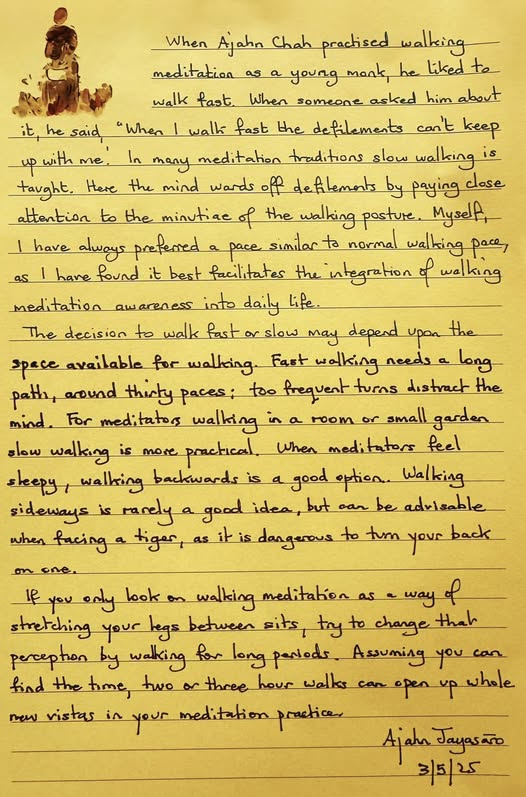 When Ajahn Chah practised walking
meditation as a young monk, he liked to
walk fast. When someone asked him about
it, he said, "When I walk fast the defilements can't keep
up with me. In many meditation traditions slow walking is
taught. Here the mind wards off defilements by paying close
attention to the minutiae of the walking posture. Myself,
I have always preferred a pace similar to normal walking pace,
as I have found it best facilitates the integration of walking
meditation awareness into daily life.
The decision to walk fast or slow may depend upon the
space available for walking. Fast walking needs a long
path, around thirty paces; too frequent turns distract the
mind. For meditators walking in a room or small garden
slow walking is more practical. When meditators feel
sleepy, walking backwards is a good option. Walking
sideways is rarely a good idea, but can be advisable
when facing a tiger, as it is dangerous to turn your back
on one.
If you only look on walking meditation as a way of
stretching your legs between sits, try to change that
perception by walking for long periods. Assuming you can
find the time, two or three hour walks can open up whole
new vistas in your meditation practice.
Ajahn Jayasāro
3/5/25